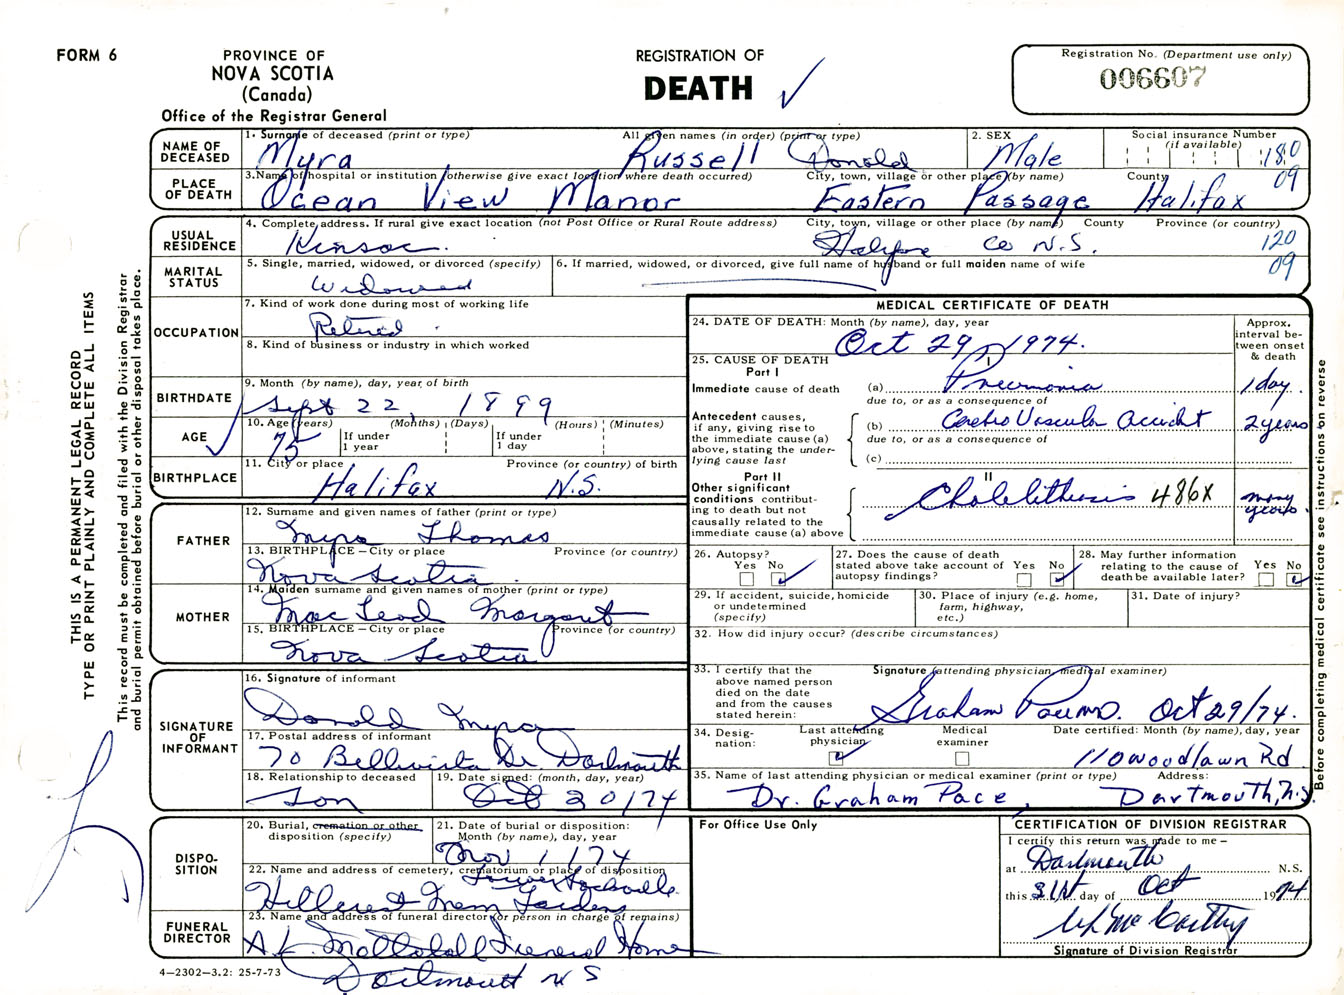 FORM 6
PROVINCE OF
NOVA SCOTIA
(Canada)
Office of the Registrar General
REGISTRATION OF
DEATH
Registration No. (Department use only)
006607
THIS IS A PERMANENT LEGAL RECORD
TYPE OR PRINT PLAINLY AND COMPLETE ALL ITEMS
This record must be completed and filed with the Division Registrar
and burial permit obtained before burial or other disposal takes place.
NAME OF DECEASED
1. Surname of deceased (print or type) All given names (in order) (print or type)
Myra Russell Donald
2. SEX
Male
Social insurance Number (if available)
180
09
PLACE OF DEATH
3. Name of hospital or institution (otherwise give exact location where death occurred) City, town, village or other place (by name) County
Ocean View Manor Eastern Passage Halifax
USUAL RESIDENCE
4. Complete address. If rural give exact location (not Post Office or Rural Route address) City, town, village or other place (by name) County Province (or country)
Halifax Co N.S.
120
09
MARITAL STATUS
5. Single, married, widowed, or divorced (specify)
Widowed
6. If married, widowed, or divorced, give full name of husband or full maiden name of wife
OCCUPATION
7. Kind of work done during most of working life
Retired
8. Kind of business or industry in which worked
BIRTHDATE
9. Month (by name), day, year of birth
Sept 22, 1899
AGE
10. Age (years) (Months) (Days) (Hours) (Minutes)
75
If under 1 year
If under 1 day
BIRTHPLACE
11. City or place Province (or country) of birth
Halifax N.S.
FATHER
12. Surname and given names of father (print or type)
Myra Thomas
13. BIRTHPLACE – City or place Province (or country)
Nova Scotia
MOTHER
14. Maiden surname and given names of mother (print or type)
Mac Leod Margaret
15. BIRTHPLACE – City or place Province (or country)
Nova Scotia
SIGNATURE OF INFORMANT
16. Signature of informant
Donald Myra
17. Postal address of informant
70 Bellevista Dr. Dartmouth
18. Relationship to deceased
Son
19. Date signed: (month, day, year)
Oct 30/74
DISPO-
SITION
20. Burial, cremation or other disposition (specify)
21. Date of burial or disposition: Month (by name), day, year
Nov 1/74
22. Name and address of cemetery, crematorium or place of disposition
Lower Sackville
Hillcrest Mem Gardens
FUNERAL DIRECTOR
23. Name and address of funeral director (or person in charge of remains)
A.L. Mattatall Funeral Home
Dartmouth N S
4–2302–3.2: 25-7-73
MEDICAL CERTIFICATE OF DEATH
24. DATE OF DEATH: Month (by name), day, year
Oct 29, 1974.
Approx. interval between onset & death
25. CAUSE OF DEATH
Part I
I
Immediate cause of death
(a) Pneumonia 1 day
due to, or as a consequence of
Antecedent causes, if any, giving rise to the immediate cause (a) above, stating the underlying cause last
(b) Cerebro Vascular Accident 2 years
due to, or as a consequence of
(c)
Part II
II
Other significant conditions contributing to death but not causally related to the immediate cause (a) above
Cholelithiasis 486X many years
26. Autopsy? Yes No
27. Does the cause of death stated above take account of autopsy findings? Yes No
28. May further information relating to the cause of death be available later? Yes No
29. If accident, suicide, homicide or undetermined (specify)
30. Place of injury (e.g. home, farm, highway, etc.)
31. Date of injury?
32. How did injury occur? (describe circumstances)
33. I certify that the above named person died on the date and from the causes stated herein:
Signature (attending physician, medical examiner)
Graham Pace M.D. Oct 29/74.
34. Designation: Last attending physician Medical examiner Date certified: Month (by name), day, year
110 Woodlawn Rd
35. Name of last attending physician or medical examiner (print or type) Address:
Dr. Graham Pace, Dartmouth, N.S.
Before completing medical certificate see instructions on reverse
For Office Use Only
CERTIFICATION OF DIVISION REGISTRAR
I certify this return was made to me –
at Dartmouth N.S.
this 31st day of Oct 1974
McCarthy
Signature of Division Registrar